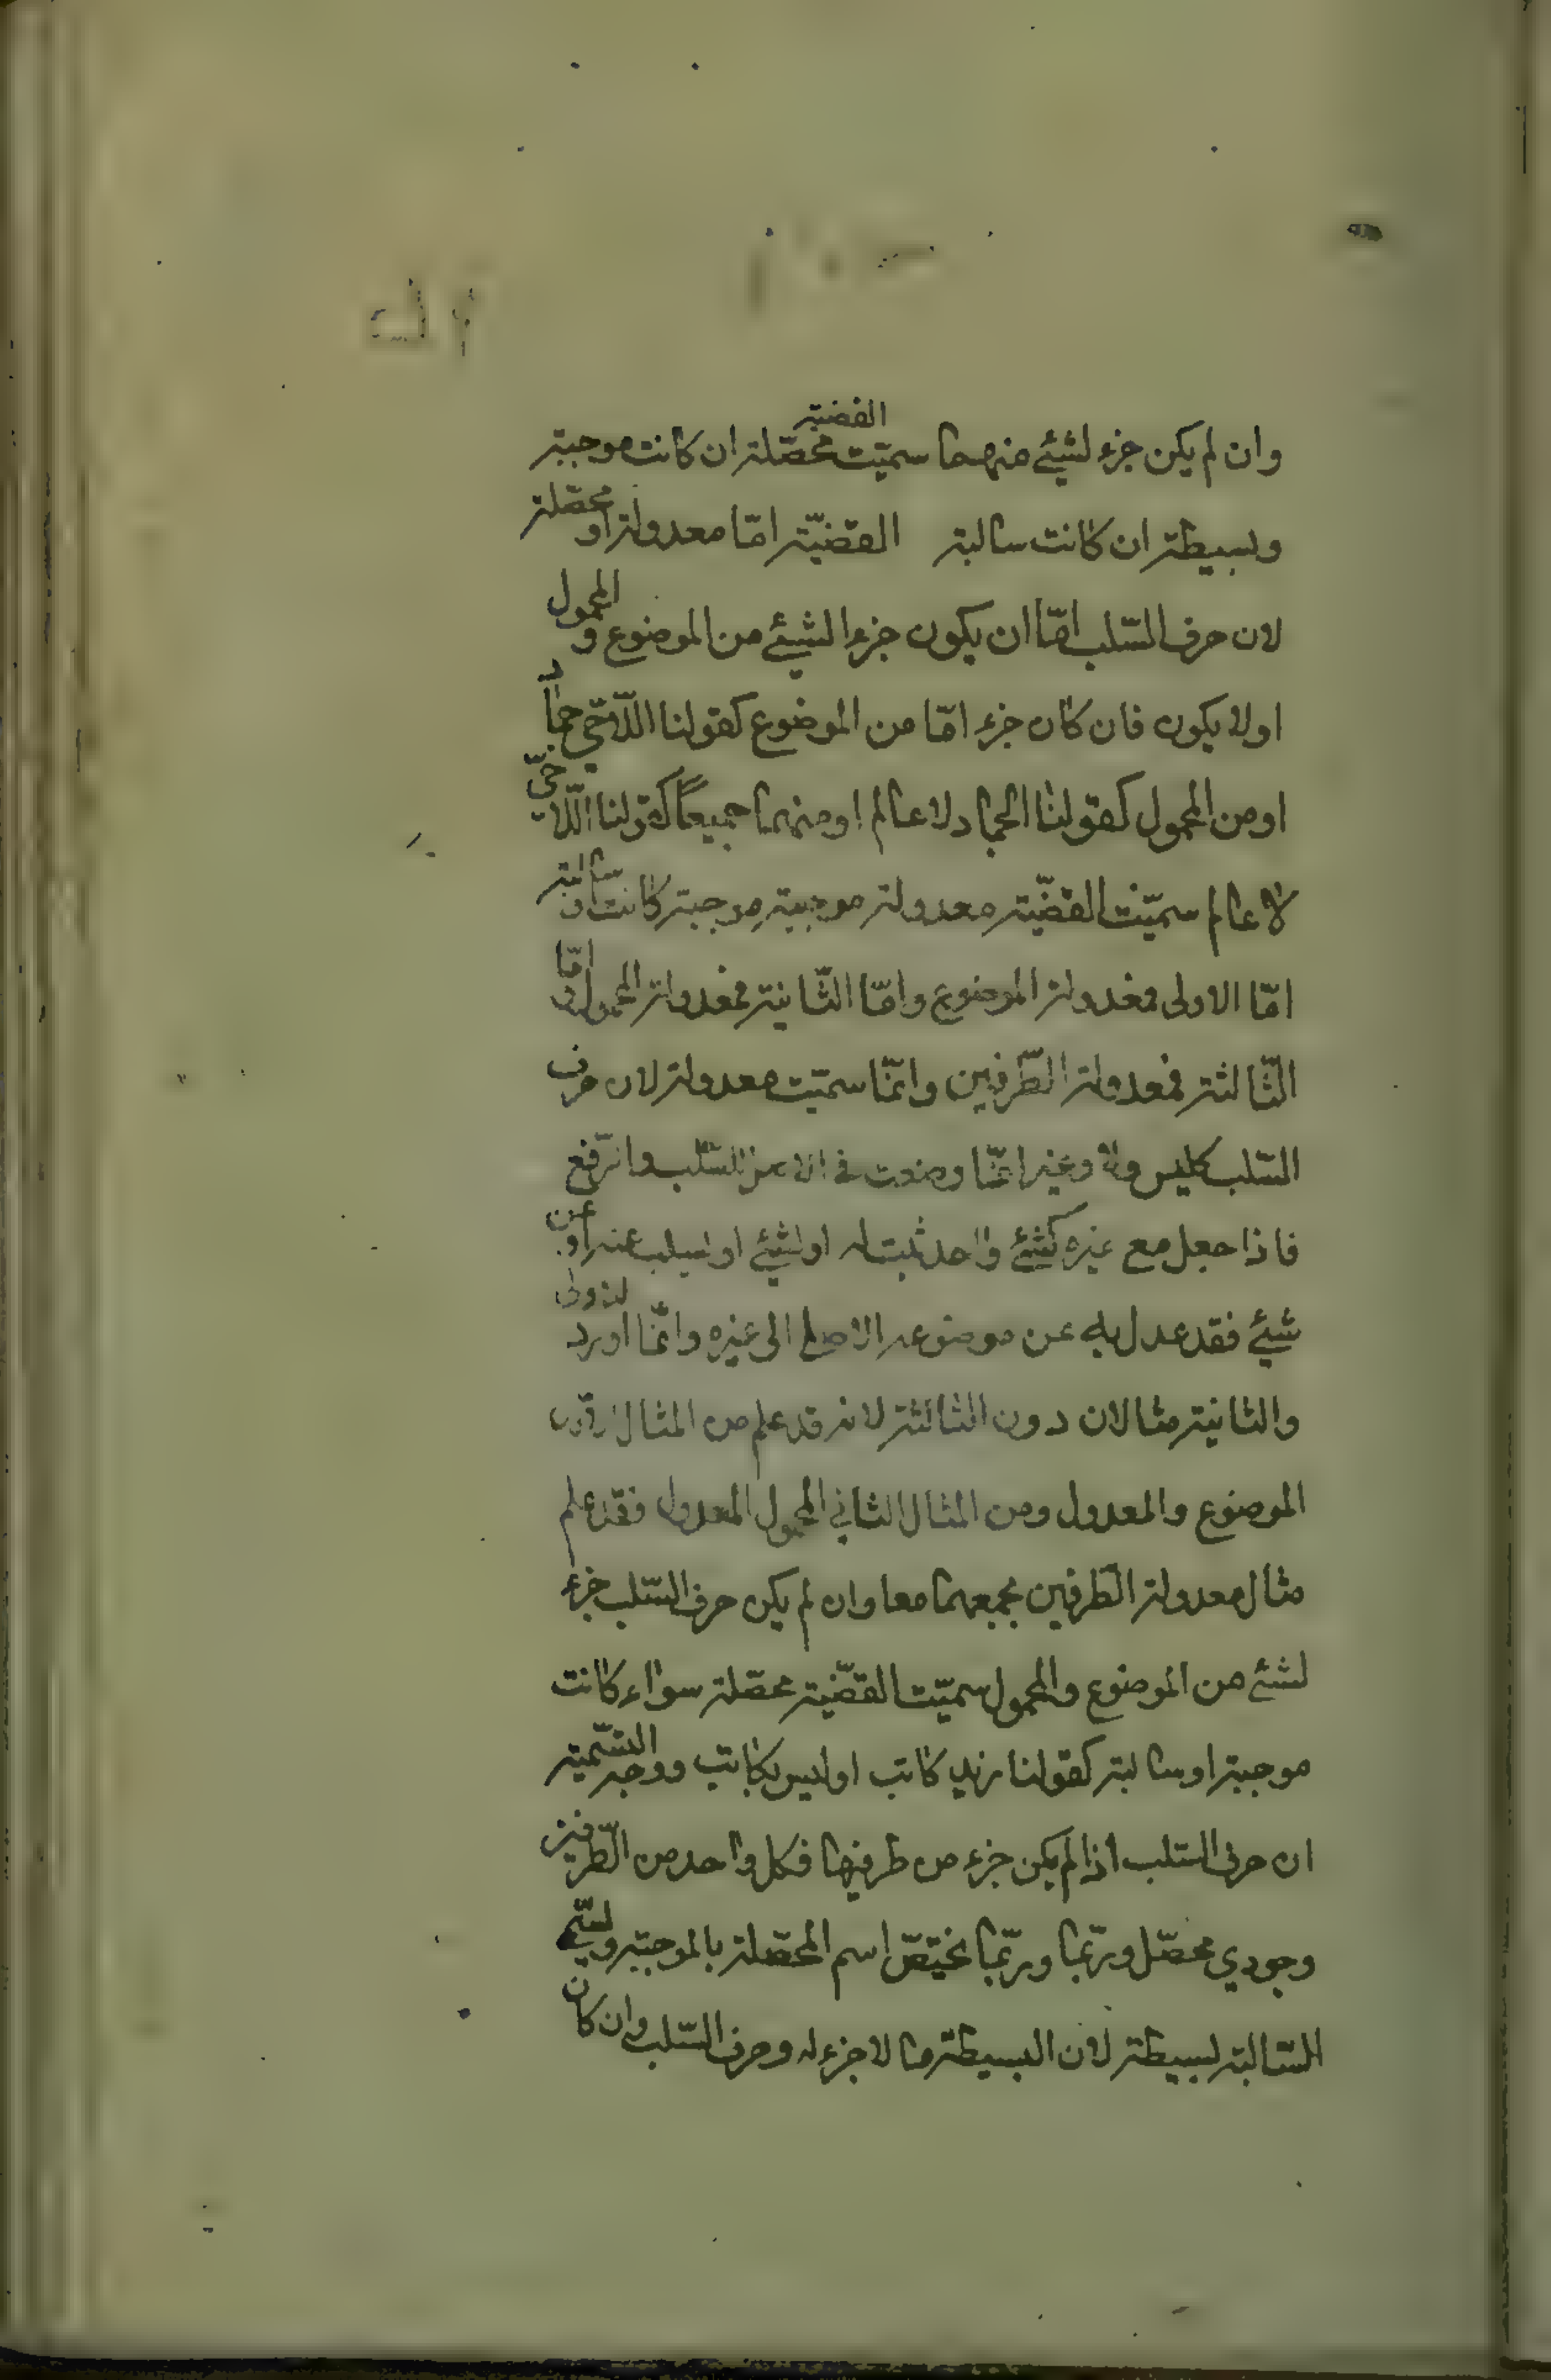 وان لم يكن جزء لشيئ منهما سميّت القضية محصّلة ان كانت موجبة
وبسيطة ان كانت سالبة القضيّة امّا معدولة او محصّلة
لان حرف السّلب امّا ان يكون جزءا لشيئ من الموضوع و المحمول
او لا يكون فان كان جزء امّا من الموضوع كقولنا اللّاحي جماد
او من المحمول كقولنا الجماد لا عالم او منهما جميعًا كقولنا اللّا حيّ
لا عالم سميّت القضيّة معدولة موجبة موجبة كانت او سالبة
امّا الاولى فمعدولة الموضوع وامّا الثّانية فمعدولة المحمول و امّا
الثّالثة فمعدولة الطّرفين وانّما سميّت معدولة لان حرف
السّلب كليس ولا وغير انّما وضعت في الاصل للسّلب والرّفع
فاذا جعل مع غيره كشيئ واحد ثبت له او لشيئ او سلب عنه او عن
شيئ فقد عدل به عن موضوعه الاصلي الى غيره وانّما اورد للاولى
والثانية مثالان دون الثالثة لانه قد علم من المثال الاول
الموضوع والمعدول ومن المثال الثاني المحمول المعدول فقد علم
مثال معدولة الطّرفين بجمعهما معا وان لم يكن حرف السّلب جزء
لشئ من الموضوع والمحمول سميّت القضّية محصّلة سواء كانت
موجبة او سالبة كقولنا زيد كاتب او ليس بكاتب ووجه التسّمية
ان حرف السّلب اذا لم يكن جزء من طرفيها فكل واحد من الطّرفين
وجودي محصّل وربّما وربّما يختصّ اسم المحصّلة بالموجبة ويسمّى
السّالبة بسيطة لان البسيطة ما لا جزء له وحرف السّلب وان كان